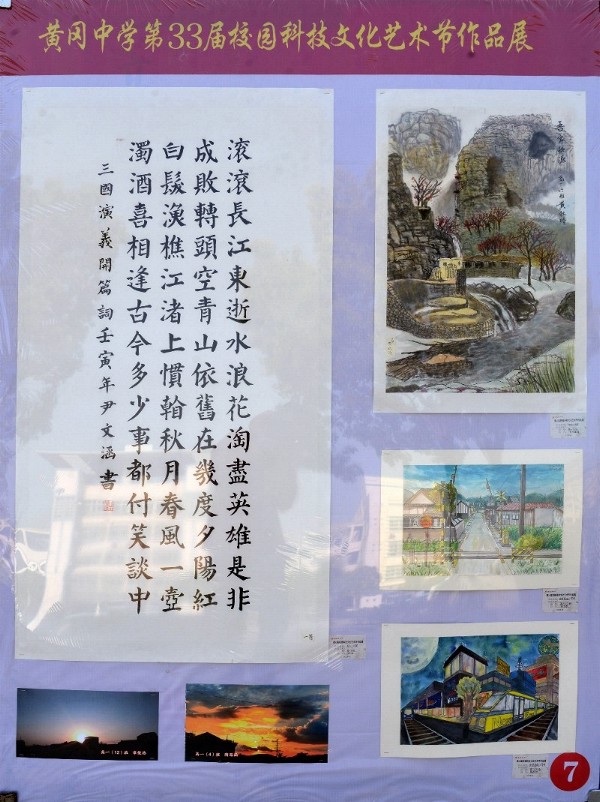 黄冈中学第33届校园科技文化艺术节作品展
滾滾長江東逝水浪花淘盡英雄是非
成敗轉頭空青山依舊在幾度夕陽紅
白髮漁樵江渚上慣看秋月春風一壺
濁酒喜相逢古今多少事都付笑談中
三國演義開篇詞壬寅年尹文涵書
高一（12）班
高一（4）班
7